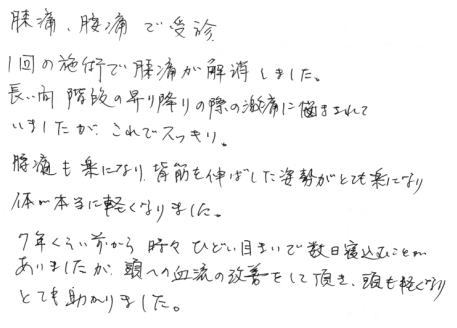 膝痛、腰痛で受診
1回の施術で膝痛が解消しました。
長い間 階段の昇り降りの際の激痛に悩まされて
いましたが、これでスッキリ。
腰痛も楽になり 背筋を伸ばした姿勢がとても楽になり
体が本当に軽くなりました。
7年くらい前から 時々 ひどい目まいで数日寝込むことが
ありましたが、頭への血流の改善をして頂き、頭も軽くなり
とても助かりました。